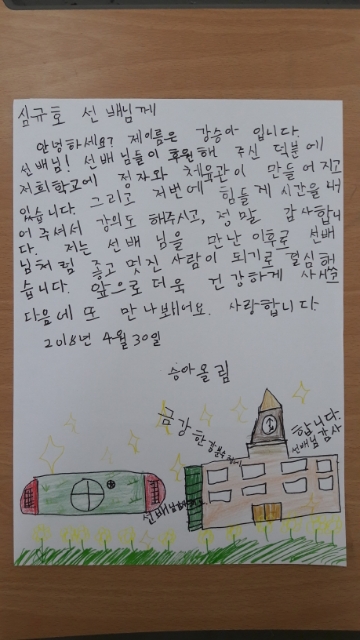 심규호 선배님께
안녕하세요? 제이름은 강승아 입니다.
선배님! 선배님들이 후원해 주신 덕분에
저희학교에 정자와 체육관이 만들어지고
있습니다. 그리고 저번에 힘들게 시간을 내
어 주셔서 강의도 해주시고, 정말 감사합니
다. 저는 선배 님을 만난 이후로 선배
님처럼 좋고 멋진 사람이 되기로 결심해
습니다. 앞으로 더욱 건강하게 사시고
다음에 또 만나뵈어요. 사랑합니다.
2018년 4월 30일
승아올림
금강한
합니다.
선배님 감사
선배님